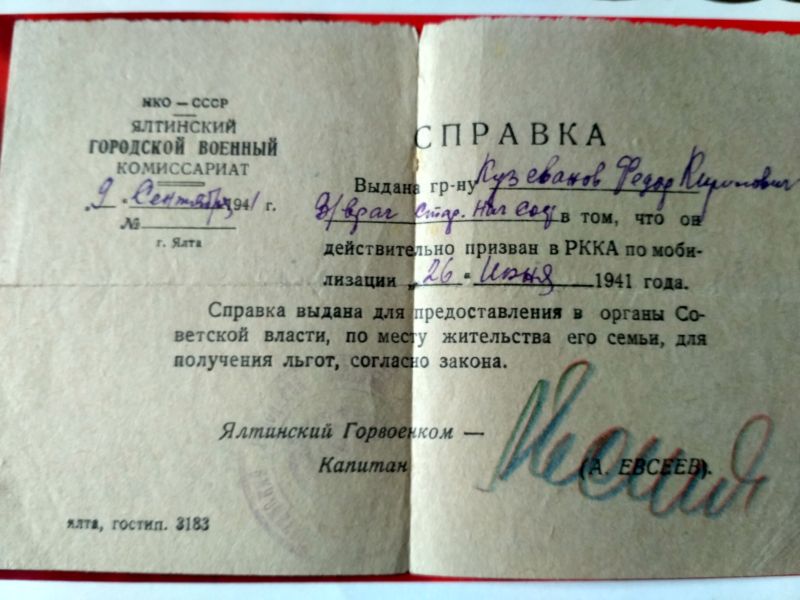 НКО — СССР
ЯЛТИНСКИЙ
ГОРОДСКОЙ ВОЕННЫЙ
КОМИССАРИАТ
„9 " Сентября 1941 г.
№
г. Ялта
СПРАВКА
Выдана гр-ну Кузеванов Федор Кириллович
З/врач стар. нач сос в том, что он
действительно призван в РККА по моби-
лизации „26 " Июня 1941 года.
Справка выдана для предоставления в органы Со-
ветской власти, по месту жительства его семьи, для
получения льгот, согласно закона.
Ялтинский Горвоенком —
Капитан (А. ЕВСЕЕВ).
ялта, гостип. 3183